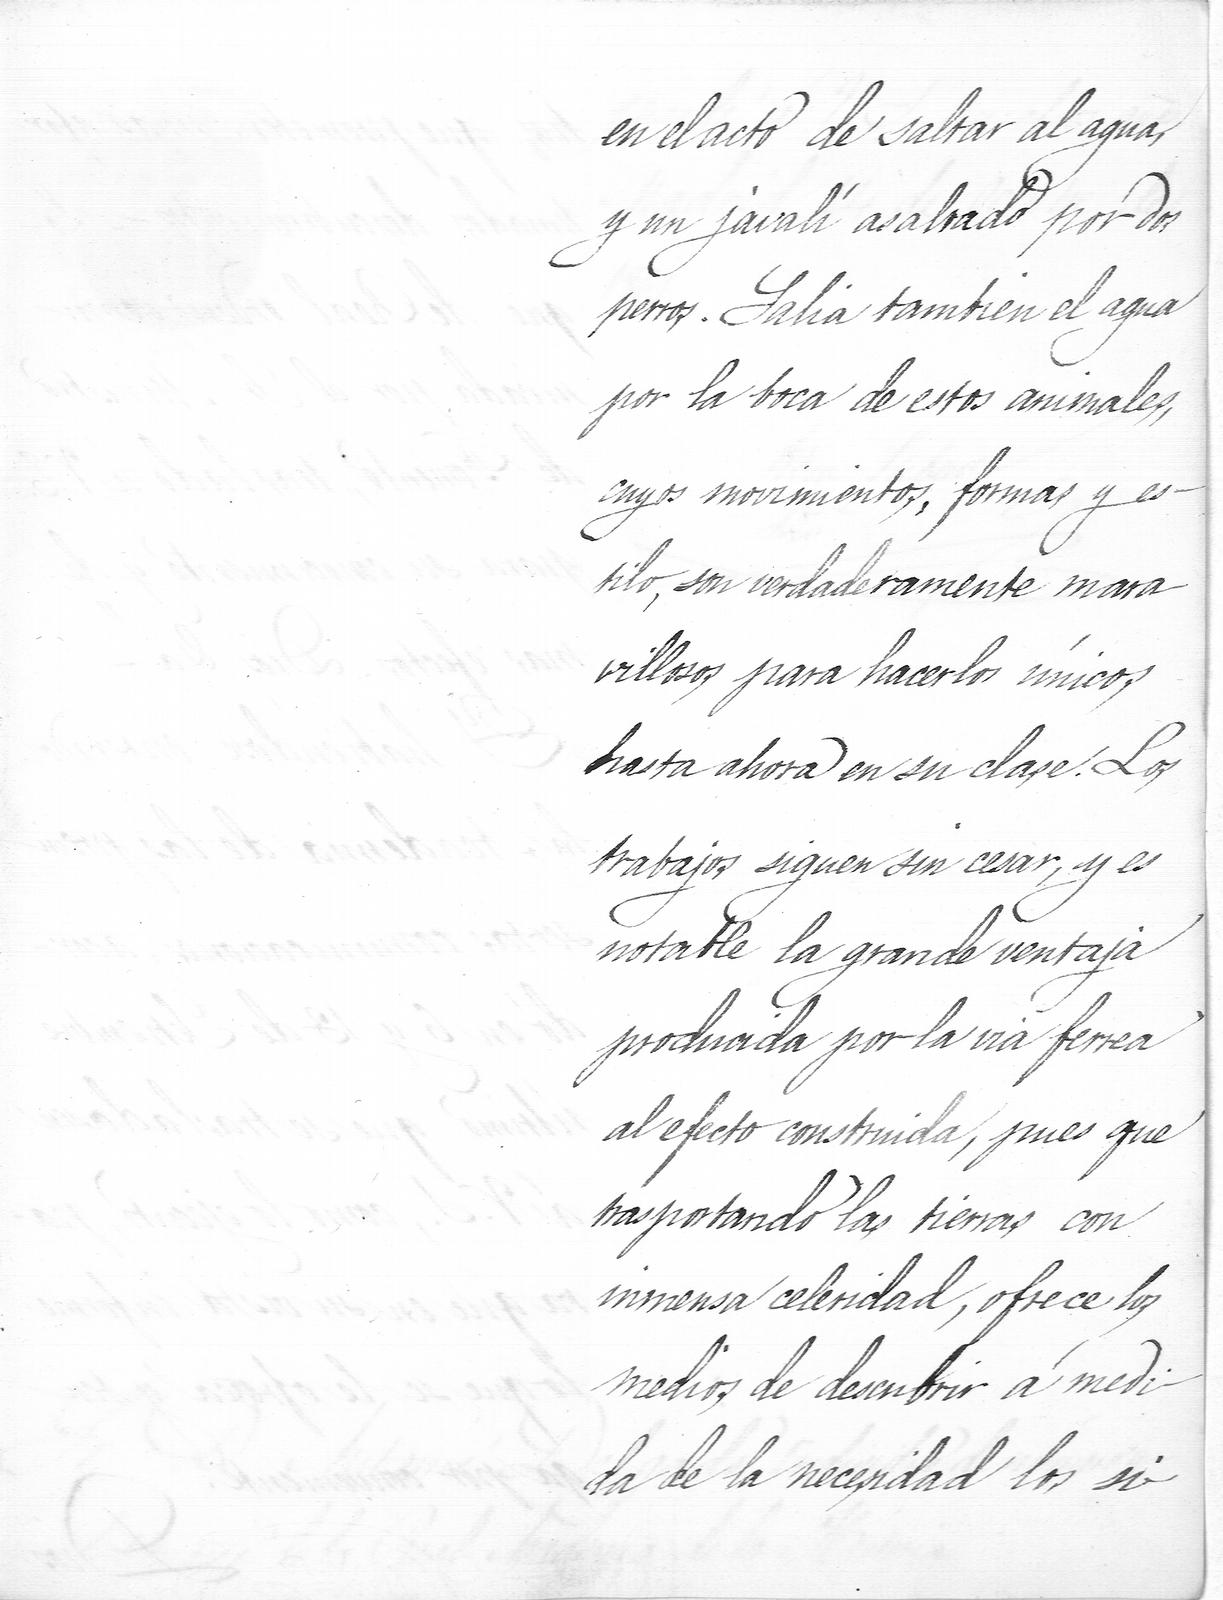 en el acto de saltar al agua,
y un javalí asaltado por dos
perros. Salia tambien el agua
por la boca de estos animales,
cuyos movimientos, formas y es-
tilo, son verdaderamente mara
villosos para hacerlos únicos,
hasta ahora en su clase. Los
trabajos siguen sin cesar, y es
notable la grande ventaja
producida por la via ferrea
al efecto construida, pues que
trasportando las tierras con
inmensa celeridad, ofrece los
medios de descubrir á medi-
da de la necesidad los si-